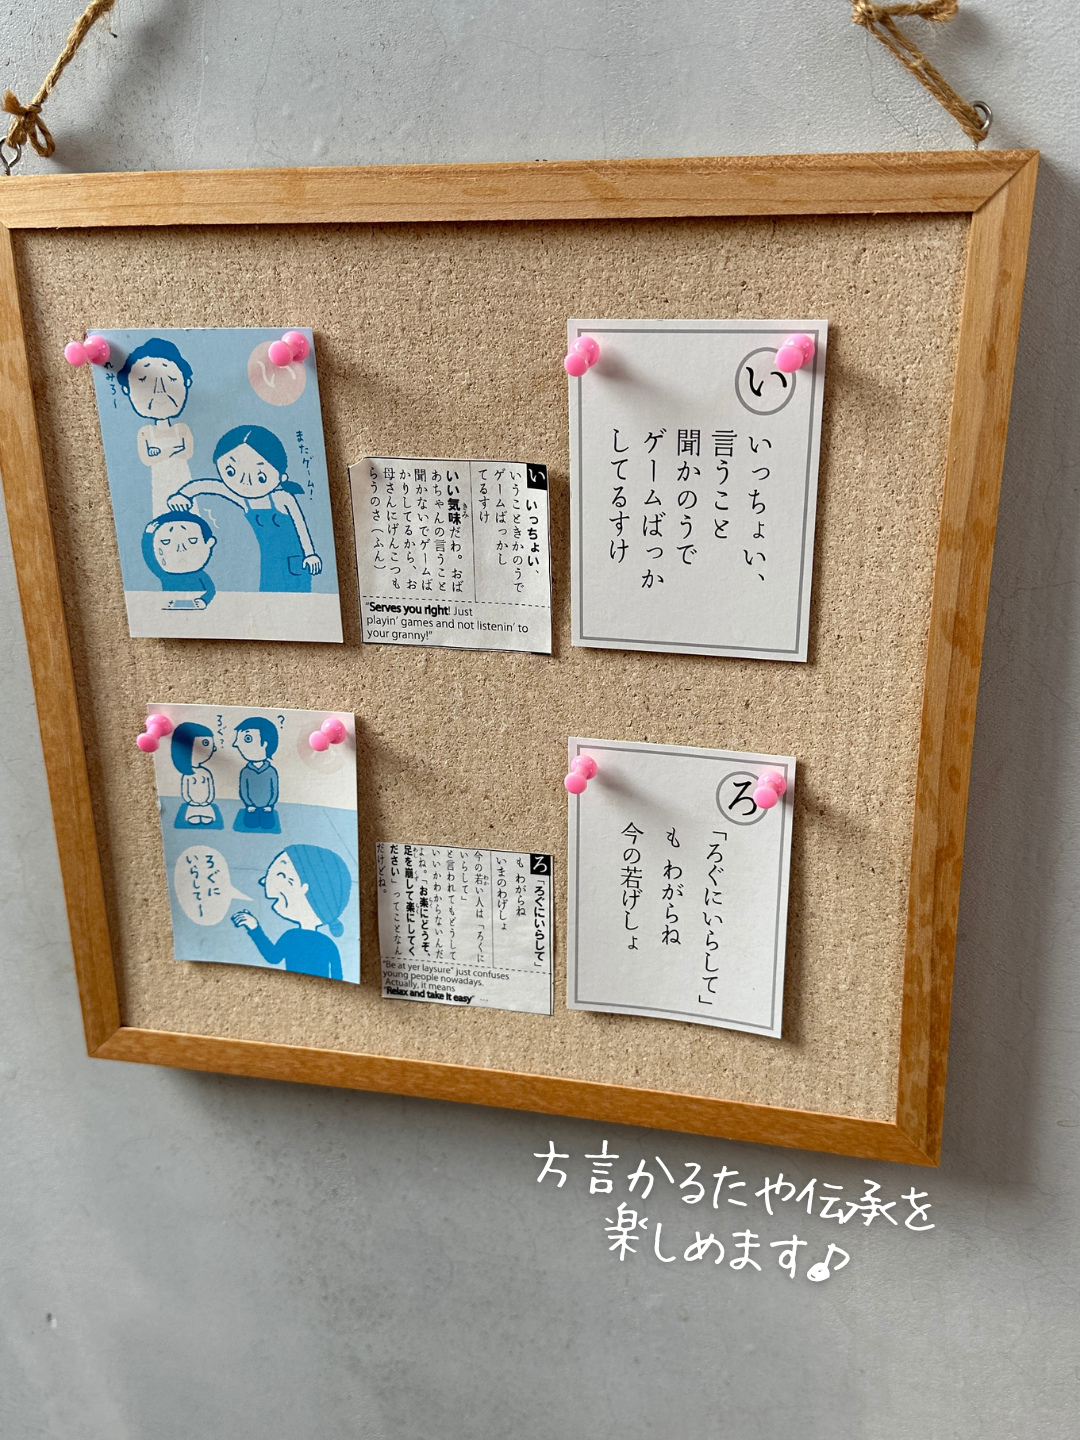 れみろ〜
い
またゲーム!
い いっちょい、
いうこときかのうで
ゲームばっかし
てるすけ
いい気味だわ。おば
あちゃんの言うこと
聞かないでゲームば
かりしてるから、お
母さんにげんこつも
らうのさ(ふん)
"Serves you right! Just
playin' games and not listenin' to
your granny!"
い
いっちょい、
言うこと
聞かのうで
ゲームばっか
してるすけ
ろぐ?
?
ろぐに
いらして〜
ろ 「ろぐにいらして」
も わがらね
いまのわげしょ
今の若い人は「ろくに
いらして」
と言われてもどうして
いいかわからないんだ
よね。「お楽にどうぞ、
足を崩して楽にしてく
ださい」ってことなん
だけどね。
"Be at yer laysure" just confuses
young people nowadays.
Actually, it means
"Relax and take it easy" …
ろ
「ろぐにいらして」
も わがらね
今の若げしょ
方言かるたや伝承を
楽しめます♪